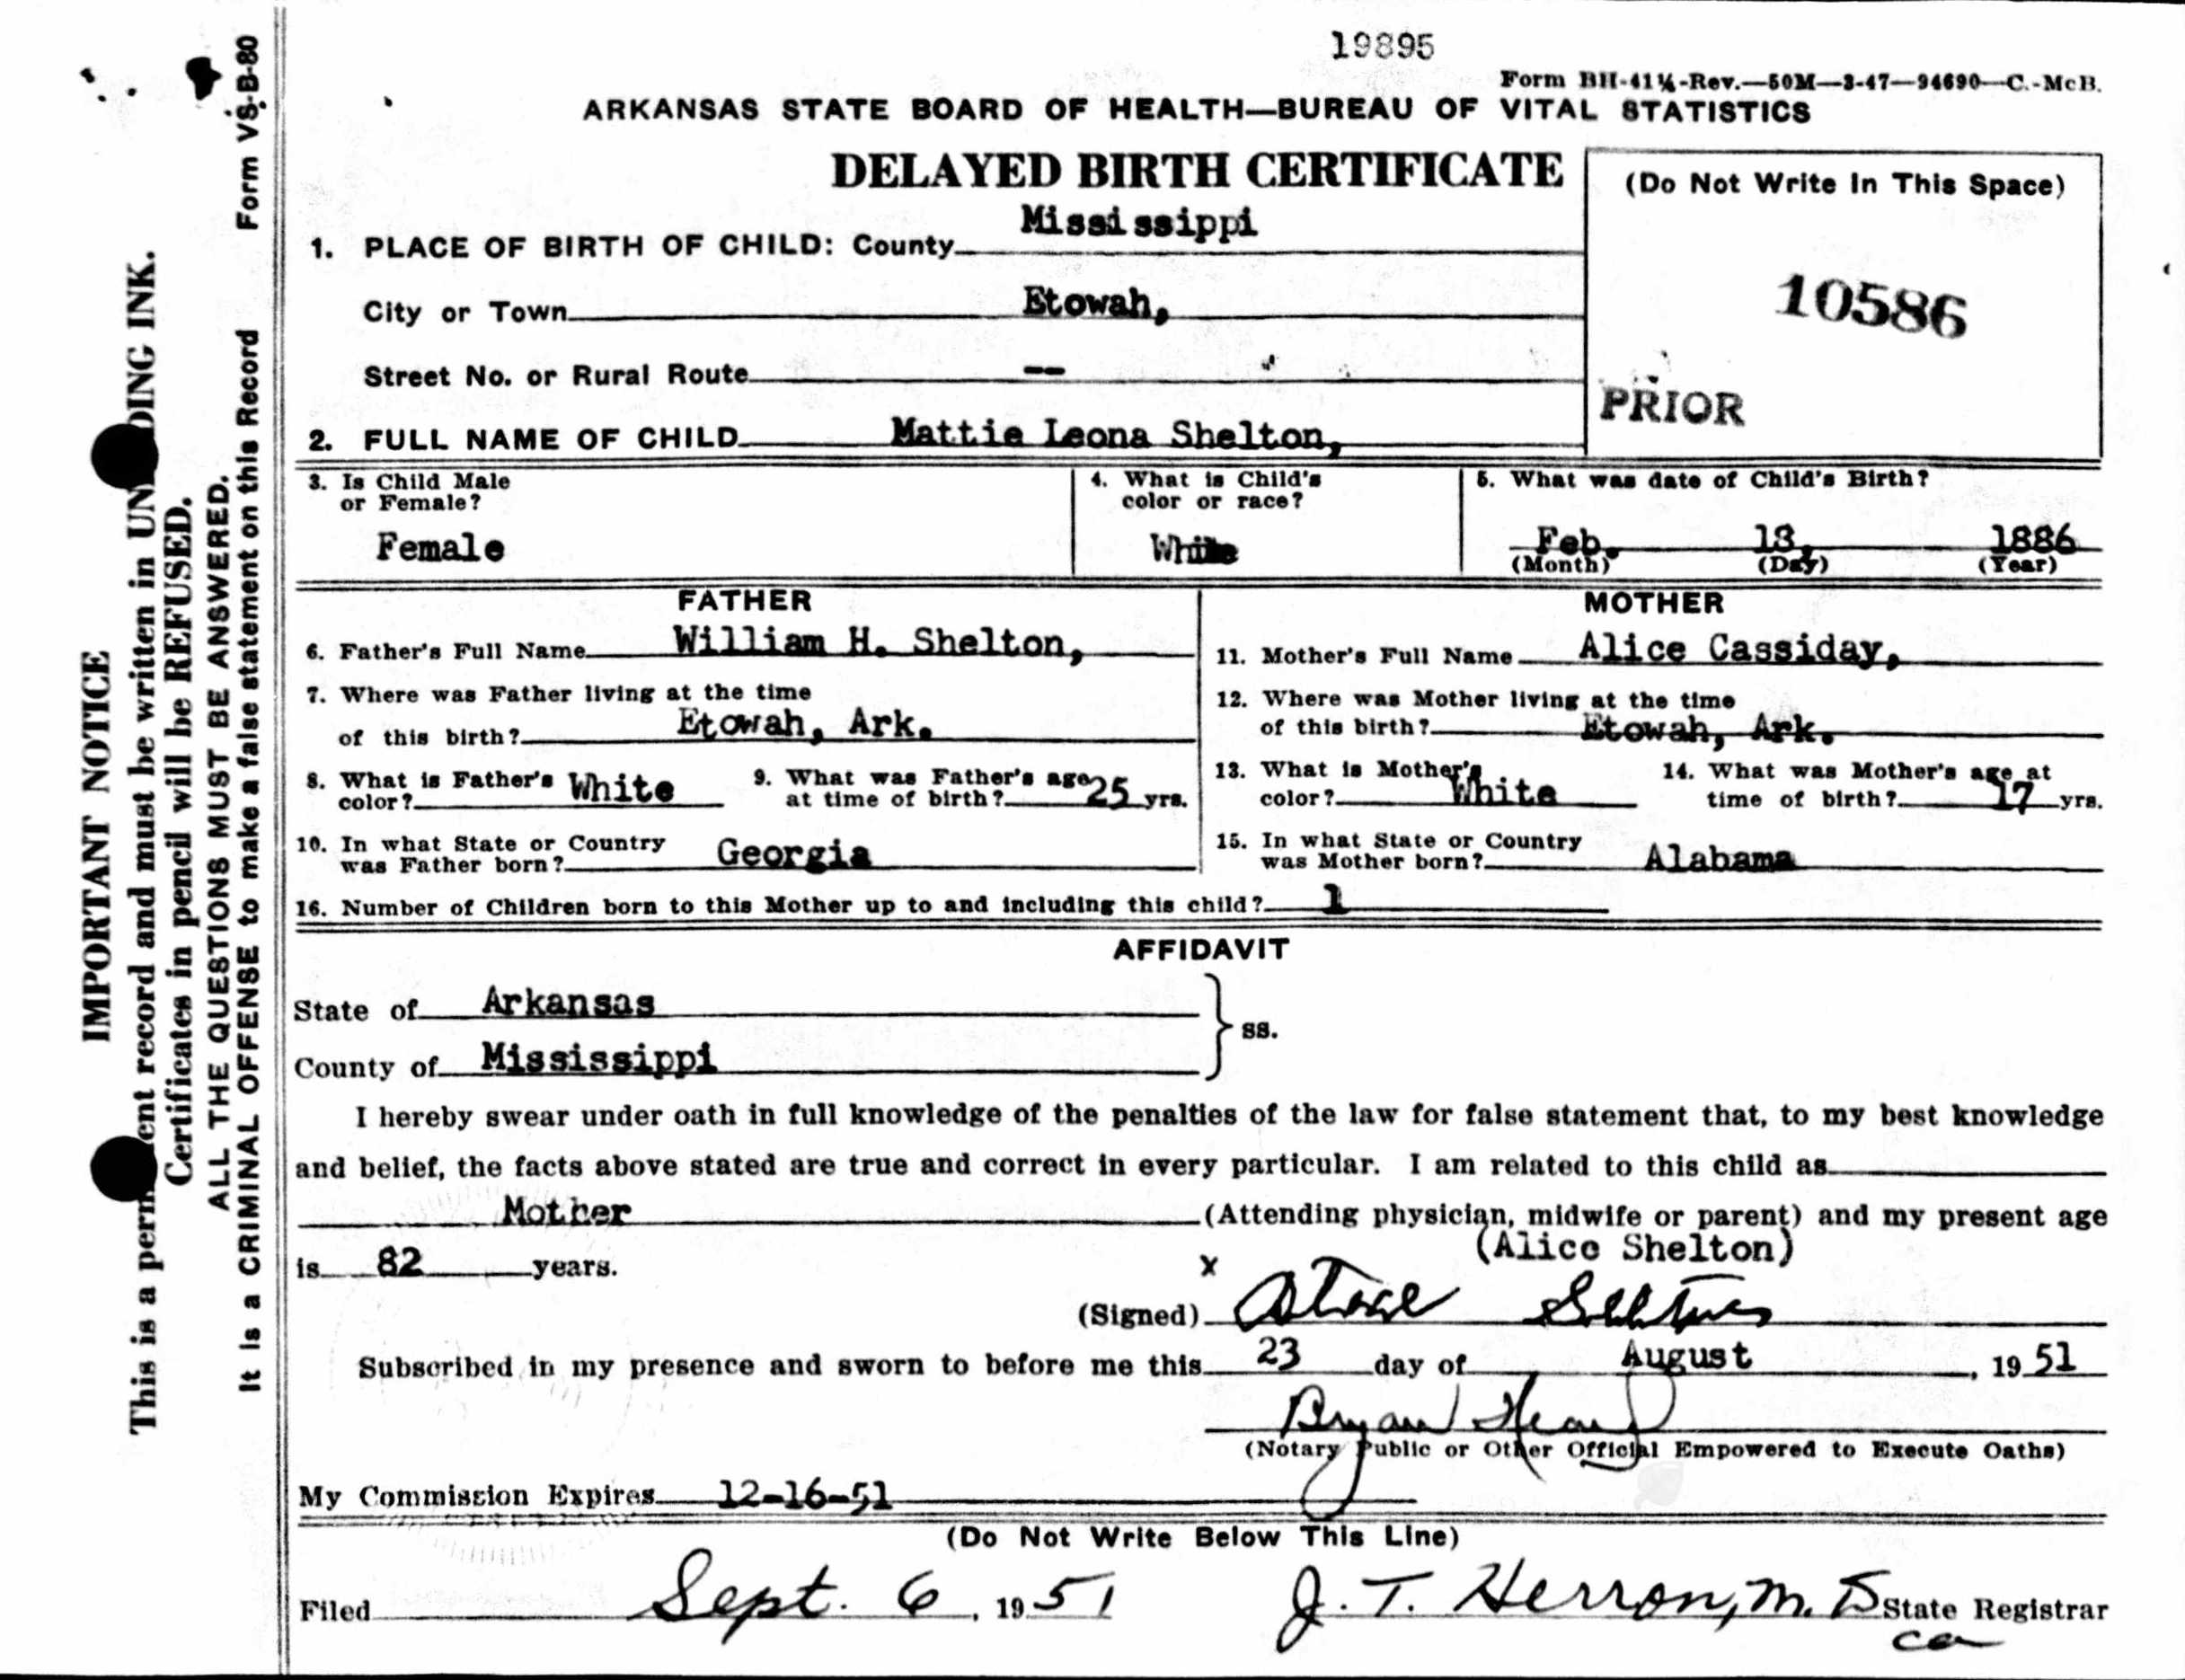 19895
Form BH-41¼-Rev.—50M—3-47—94690—C.-McB.
ARKANSAS STATE BOARD OF HEALTH—BUREAU OF VITAL STATISTICS
DELAYED BIRTH CERTIFICATE
(Do Not Write In This Space)
10586
PRIOR
1. PLACE OF BIRTH OF CHILD: County Mississippi
City or Town Etowah,
Street No. or Rural Route --
2. FULL NAME OF CHILD Mattie Leona Shelton,
3. Is Child Male
or Female?
Female
4. What is Child's
color or race?
White
5. What was date of Child's Birth?
Feb. 18, 1886
(Month) (Day) (Year)
FATHER
6. Father's Full Name William H. Shelton,
7. Where was Father living at the time
of this birth? Etowah, Ark.
8. What is Father's
color? White
9. What was Father's age
at time of birth? 25 yrs.
10. In what State or Country
was Father born? Georgia
MOTHER
11. Mother's Full Name Alice Cassiday,
12. Where was Mother living at the time
of this birth? Etowah, Ark.
13. What is Mother's
color? White
14. What was Mother's age at
time of birth? 17 yrs.
15. In what State or Country
was Mother born? Alabama
16. Number of Children born to this Mother up to and including this child? 1
AFFIDAVIT
State of Arkansas
County of Mississippi
} ss.
I hereby swear under oath in full knowledge of the penalties of the law for false statement that, to my best knowledge
and belief, the facts above stated are true and correct in every particular. I am related to this child as
Mother (Attending physician, midwife or parent) and my present age
is 82 years.
(Alice Shelton)
x
(Signed)
Subscribed in my presence and sworn to before me this 23 day of August, 19 51
Bryan
(Notary Public or Other Official Empowered to Execute Oaths)
My Commission Expires 12-16-51
(Do Not Write Below This Line)
Filed Sept. 6, 19 51 J. T. Herron, M. D State Registrar
ca
Form VS-B-80
IMPORTANT NOTICE
This is a perm ent record and must be written in UN DING INK.
Certificates in pencil will be REFUSED.
ALL THE QUESTIONS MUST BE ANSWERED.
It is a CRIMINAL OFFENSE to make a false statement on this Record